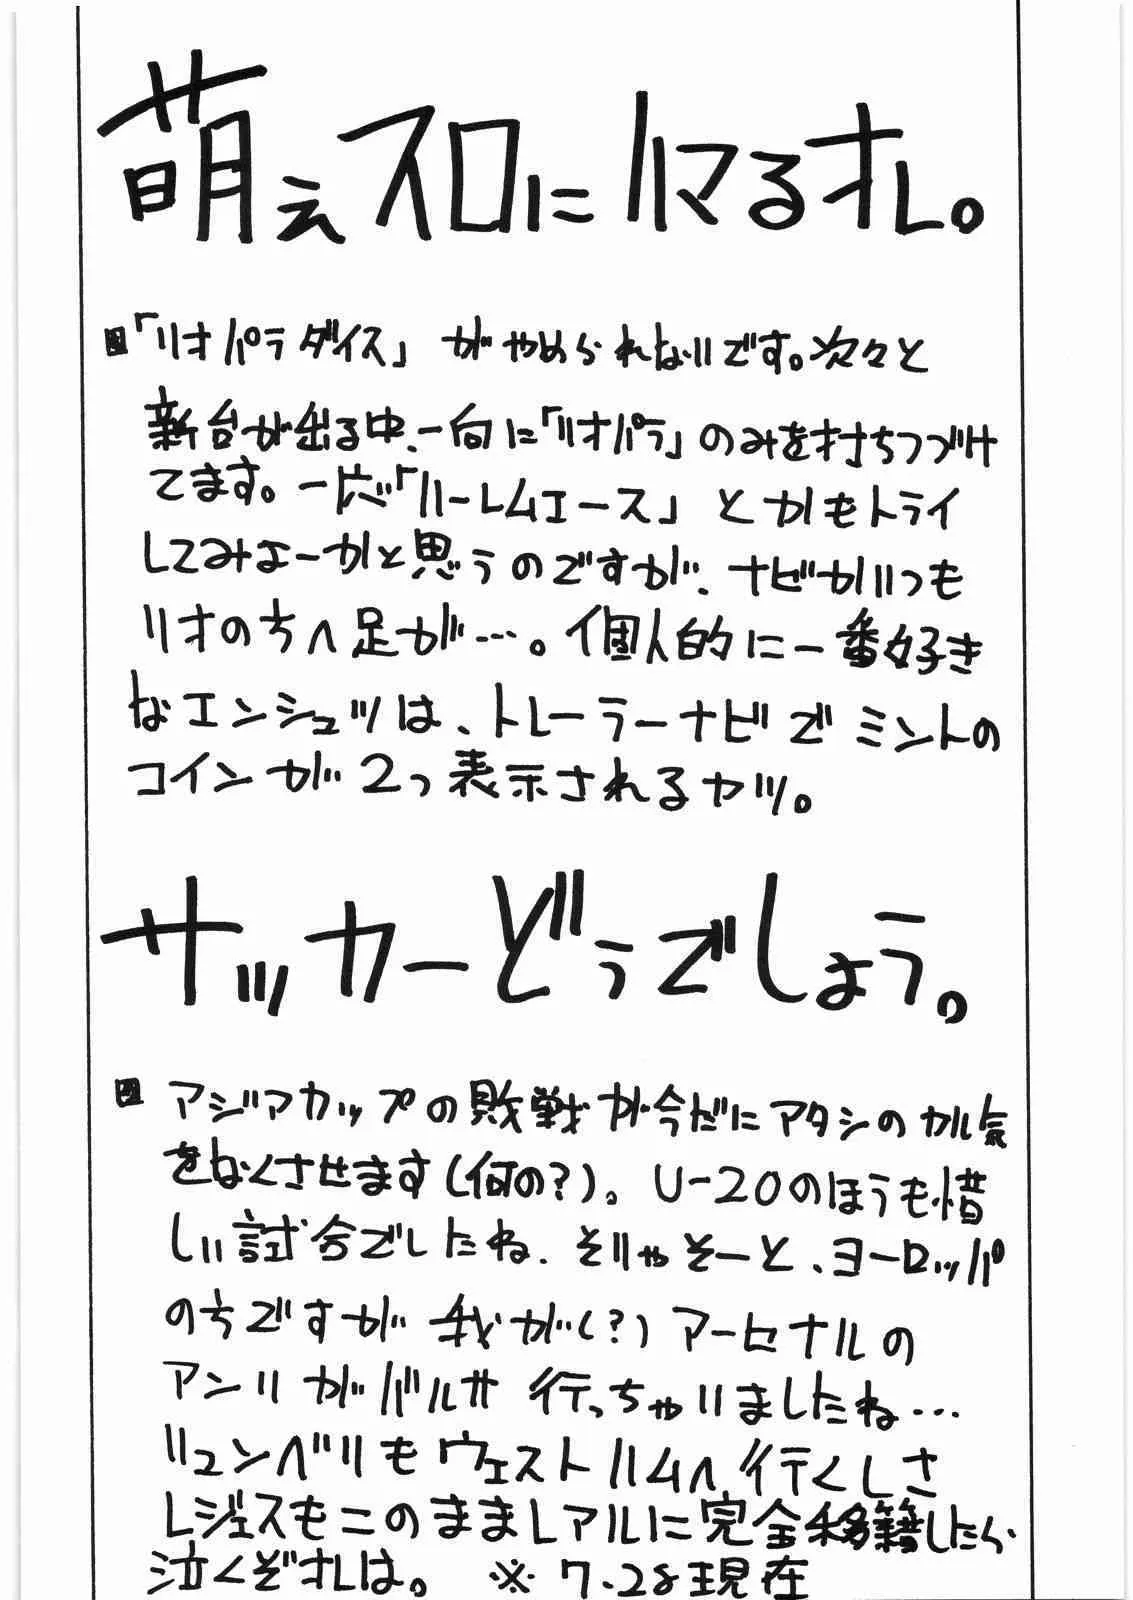 萌えスロにハマるオレ。
「リオパラダイス」がやめられないです。次々と
新台が出る中、一向に「リオパラ」のみを打ちつづけ
てます。一応「ハーレムエース」とかもトライ
してみよーかと思うのですが、ナゼかいつも
リオのちへ足が…。個人的に一番好き
なエンシュツは、トレーラーナビでミントの
コインが2つ表示されるヤツ。
サッカーどうでしょう。
アジアカップの敗戦が今だにアタシのヤル気
をなくさせます(何の?)。U-20のほうも惜
しい試合でしたね、そりゃそーと、ヨーロッパ
の方ですが我が(?)アーセナルの
アンリがバルサ行っちゃいましたね…
リュンベリもウェストハムへ行くしさ
レジェスもこのままレアルに完全移籍したら
泣くぞオレは。 ※7.28現在